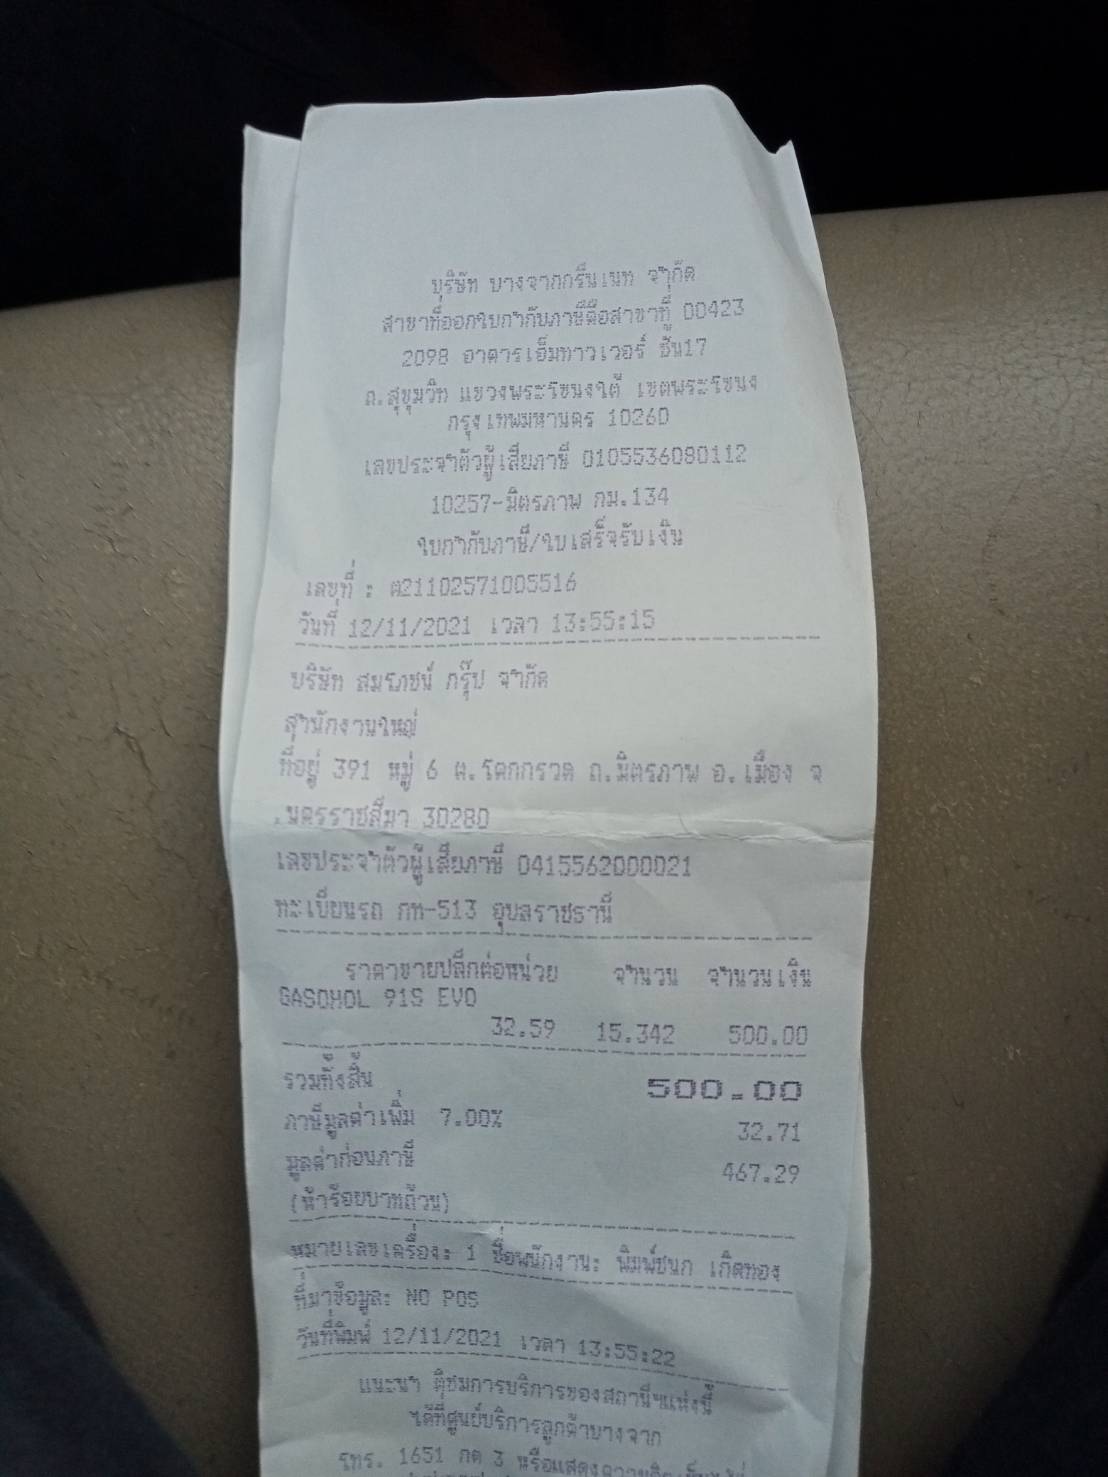 บริษัท บางจากกรีนเนท จำกัด
สาขาที่ออกใบกำกับภาษีคือสาขาที่ 00423
2098 อาคารเอ็มทาวเวอร์ ชั้น17
ถ.สุขุมวิท แขวงพระโขนงใต้ เขตพระโขนง
กรุงเทพมหานคร 10260
เลขประจำตัวผู้เสียภาษี 0105536080112
10257-มิตรภาพ กม.134
ใบกำกับภาษี/ใบเสร็จรับเงิน
เลขที่ : ต21102571005516
วันที่ 12/11/2021 เวลา 13:55:15
บริษัท สมโภชน์ กรุ๊ป จำกัด
สำนักงานใหญ่
ที่อยู่ 391 หมู่ 6 ต.โคกกรวด ถ.มิตรภาพ อ.เมือง จ
.นครราชสีมา 30280
เลขประจำตัวผู้เสียภาษี 0415562000021
ทะเบียนรถ กท-513 อุบลราชธานี
ราคาขายปลีกต่อหน่วย จำนวน จำนวนเงิน
GASOHOL 91S EVO
32.59 15.342 500.00
รวมทั้งสิ้น 500.00
ภาษีมูลค่าเพิ่ม 7.00% 32.71
มูลค่าก่อนภาษี 467.29
(ห้าร้อยบาทถ้วน)
หมายเลขเครื่อง: 1 ชื่อพนักงาน: พิมพ์ชนก เกิดทอง
ที่มาข้อมูล: NO POS
วันที่พิมพ์ 12/11/2021 เวลา 13:55:22
แนะนำ ติชมการบริการของสถานีฯแห่งนี้
ได้ที่ศูนย์บริการลูกค้าบางจาก
โทร. 1651 กด 3 หรือแสดงความคิดเห็น